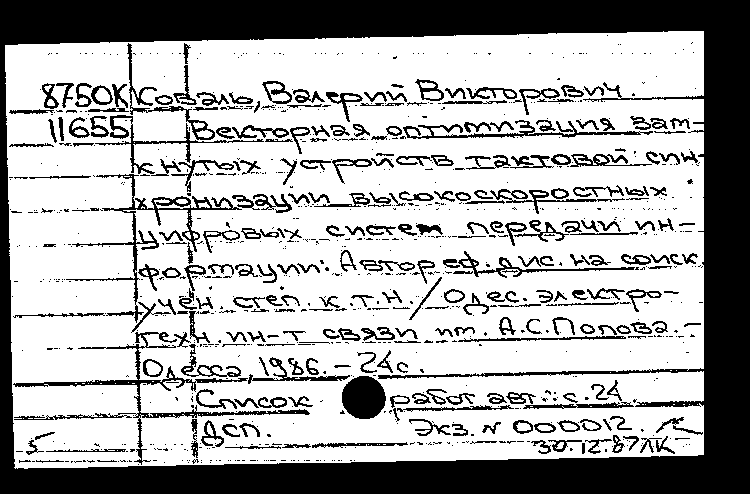 8750К Коваль, Валерий Викторович.
11655 Векторная оптимизация зам-
кнутых устройств тактовой син-
хронизации высокоскоростных
цифровых систем передачи ин-
формации: Автореф. дис. на соиск.
учен. степ. к.т.н. / Одес. электро-
техн. ин-т связи им. А.С.Попова. -
Одесса, 1986. - 24с.
Список работ авт.: с.24.
ДСП. Экз. N 000012.
5 30.12.87ЛК